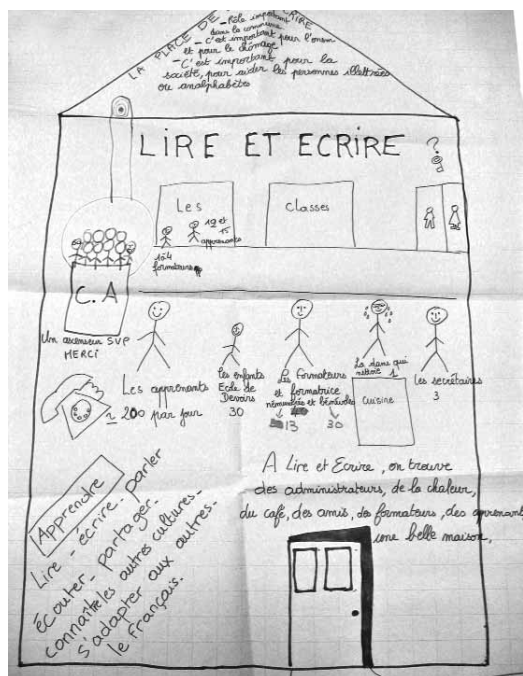 LA PLACE DE
- Pôle important
dans la commune
- C'est important pour l'onem
et pour le chômage!
- C'est important pour la
société, pour aider les personnes illettrées
ou analphabètes
LIRE ET ECRIRE
?
Les
Classes
12 et
15
apprenants
1 à 4
formateurs
C.A
Un ascenseur SVP
MERCI
Les apprenants
± 200 par jour
Les enfants
Ecole de
Devoirs
30
Les Formateurs
et formatrice
rémunérés et bénévoles
13 30
La dame qui
nettoie 1
Cuisine
Les secrétaires
3
Apprendre
Lire - écrire - parler
écouter - partager -
connaître les autres cultures -
s'adapter aux autres -
le français.
A Lire et Ecrire, on trouve
des administrateurs, de la chaleur,
du café, des amis, des formateurs, des apprenants
une belle maison,